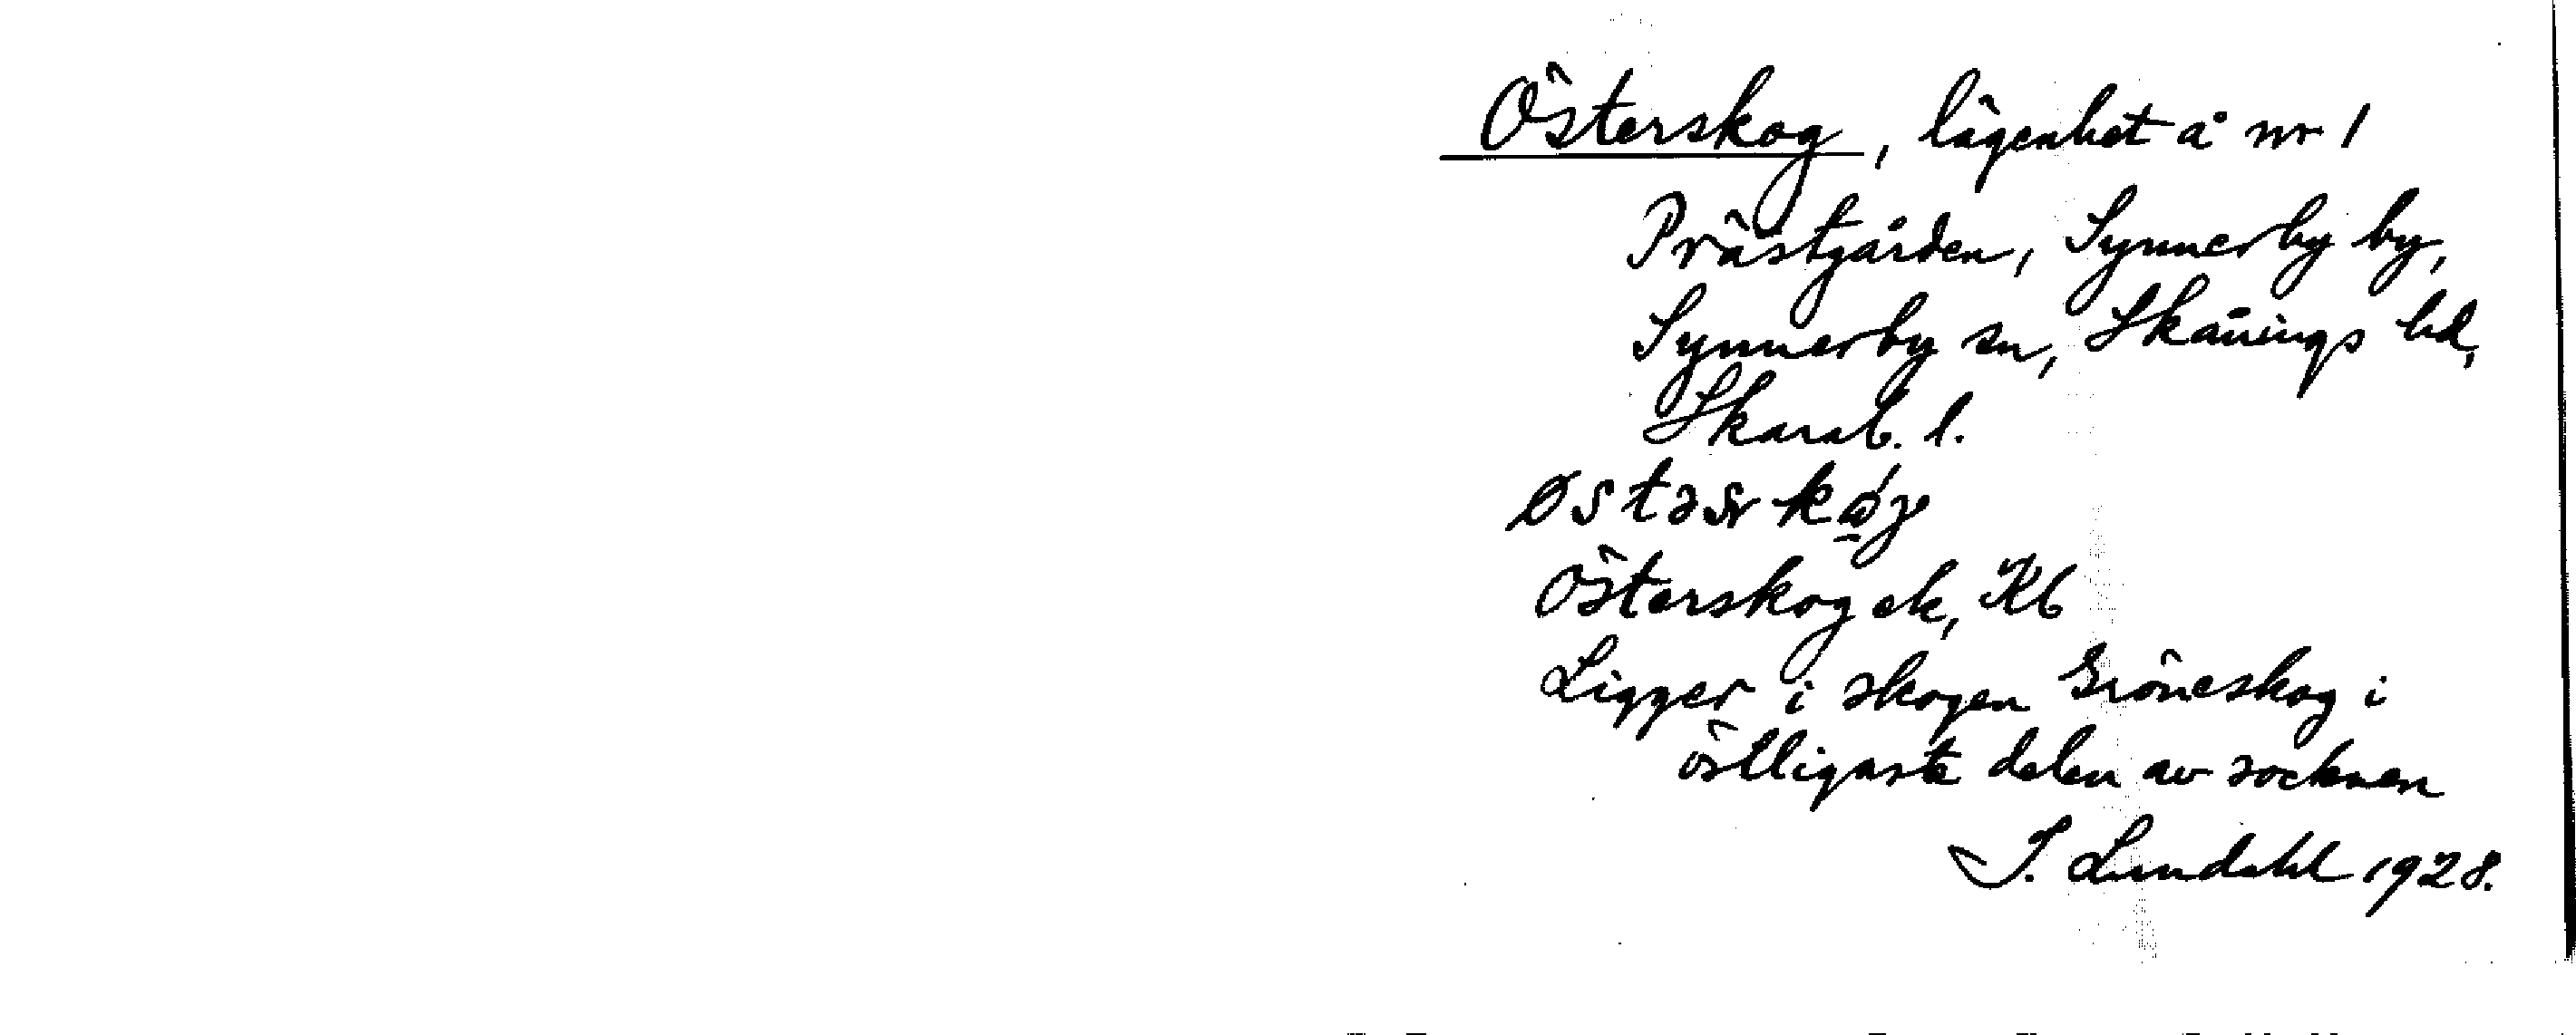 Österskog, lägenhet å nr 1
Prästgården, Synnerby by,
Synnerby sn, Skånings hd,
Skarab. l.
Österskog ek, Kb
Ligger i skogen Gröneskog i
östligaste delen av socknen
I. Lundahl 1928.